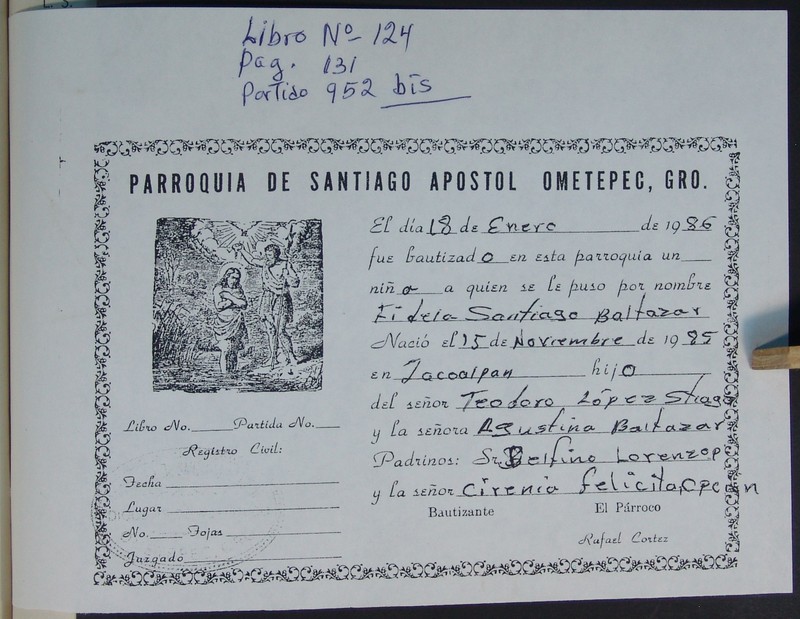 Libro Nº 124
Pag. 131
Partido 952 bis
PARROQUIA DE SANTIAGO APOSTOL OMETEPEC, GRO.
El día 18 de Enero de 1986
fue bautizado en esta parroquia un
niño a quien se le puso por nombre
Santiago Baltazar
Nació el 15 de Noviembre de 1985
en Jacoalpan hijo
del señor Teodoro López Stiago
y la señora Agustina Baltazar
Padrinos: Sr. Delfino Lorenzo P
y la señor Cirenia felicita
Bautizante El Párroco
Rafael Cortez
Libro No. Partida No.
Registro Civil:
Fecha
Lugar
No. Fojas
Juzgado